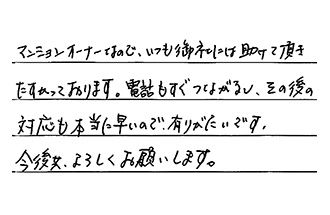 マンションオーナーなので、いつも御社には助けて頂き
たすかっております。電話もすぐつながるし、その後の
対応も本当に早いので、有りがたいです。
今後共、よろしくお願いします。